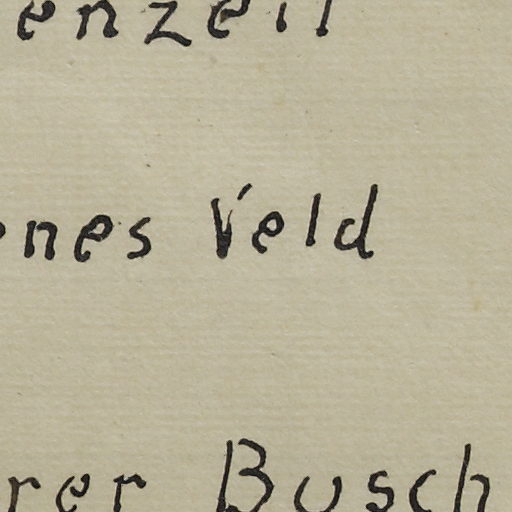 enzeil
nes Veld
rer Busch